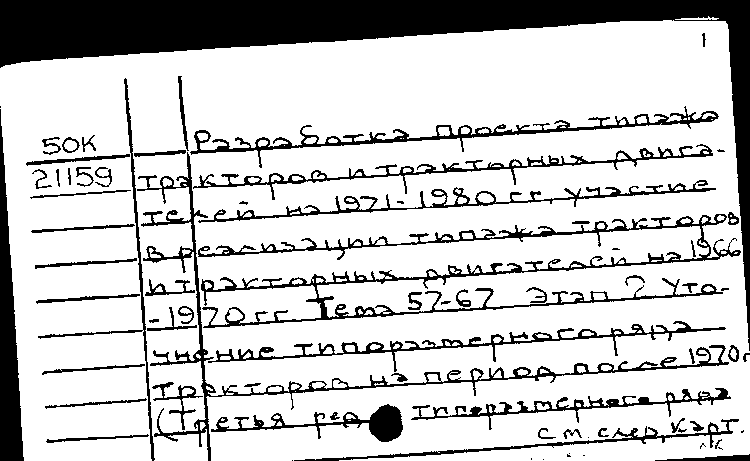 1
50К Разработка проекта типажа
21159 тракторов и тракторных двига-
телей на 1971-1980 гг, участие
в реализации типажа тракторов
и тракторных двигателей на 1966
-1970 гг. Тема 57-67 Этап 2 Уто-
чнение типоразмерного ряда
тракторов на период после 1970г
(Третья ред типоразмерного ряда
см след, карт.